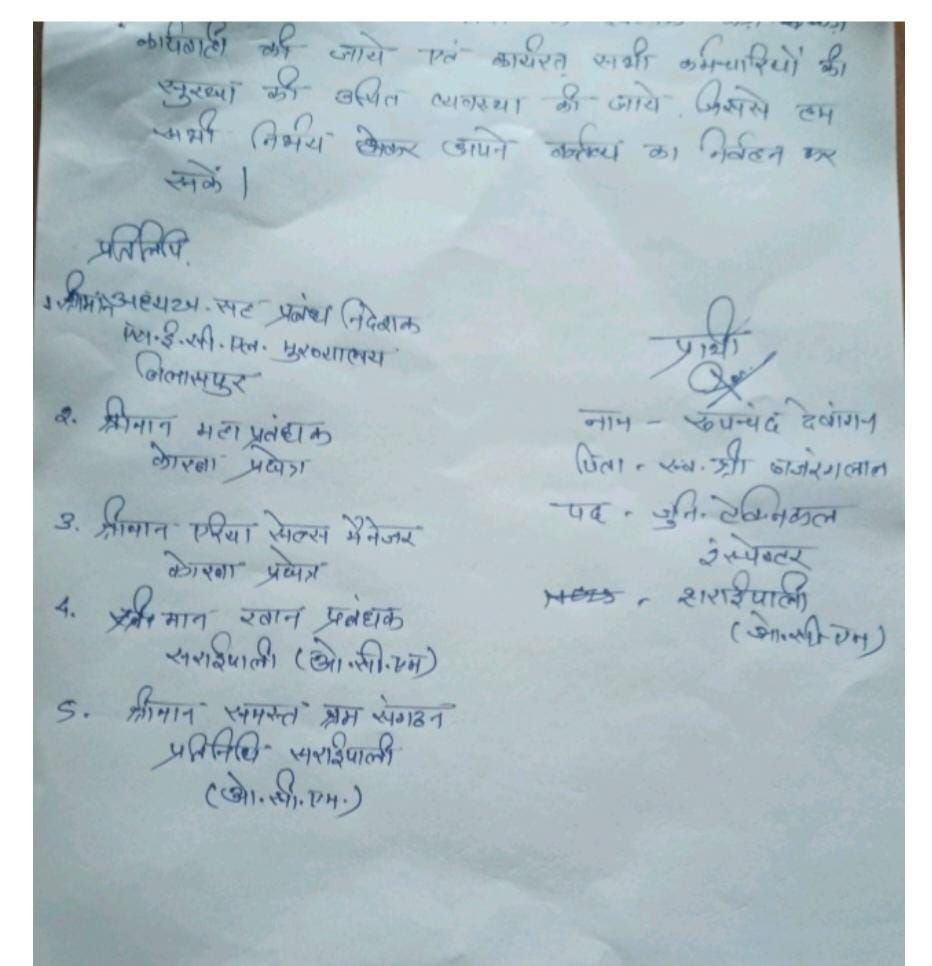 कार्यवाही की जाये एवं कार्यरत सभी कर्मचारियों की
सुरक्षा की उचित व्यवस्था की जाये जिससे हम
सभी निर्भय होकर अपने कर्तव्य का निर्वहन कर
सकें |
प्रतिलिपि
1. श्रीमान अध्यक्ष. सह प्रबंध निदेशक
एस.ई.सी.एल. मुख्यालय
बिलासपुर
2. श्रीमान महाप्रबंधक
कोरबा प्रक्षेत्र
3. श्रीमान एरिया सेल्स मैनेजर
कोरबा प्रक्षेत्र
4. श्रीमान खान प्रबंधक
सराईपाली (ओ.सी.एम)
5. श्रीमान समस्त श्रम संगठन
प्रतिनिधि सराईपाली
(ओ.सी.एम.)
प्रार्थी
नाम - रूपचंद देवांगन
पिता - स्व. श्री बजरंगलाल
पद - जुनि. टेक्निकल
इंस्पेक्टर
- सराईपाली
(ओ.सी.एम)